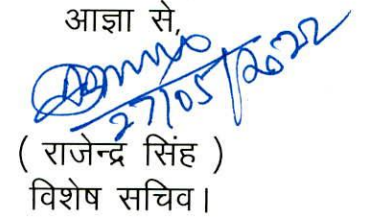 आज्ञा से,
27/05/2022
( राजेन्द्र सिंह )
विशेष सचिव।